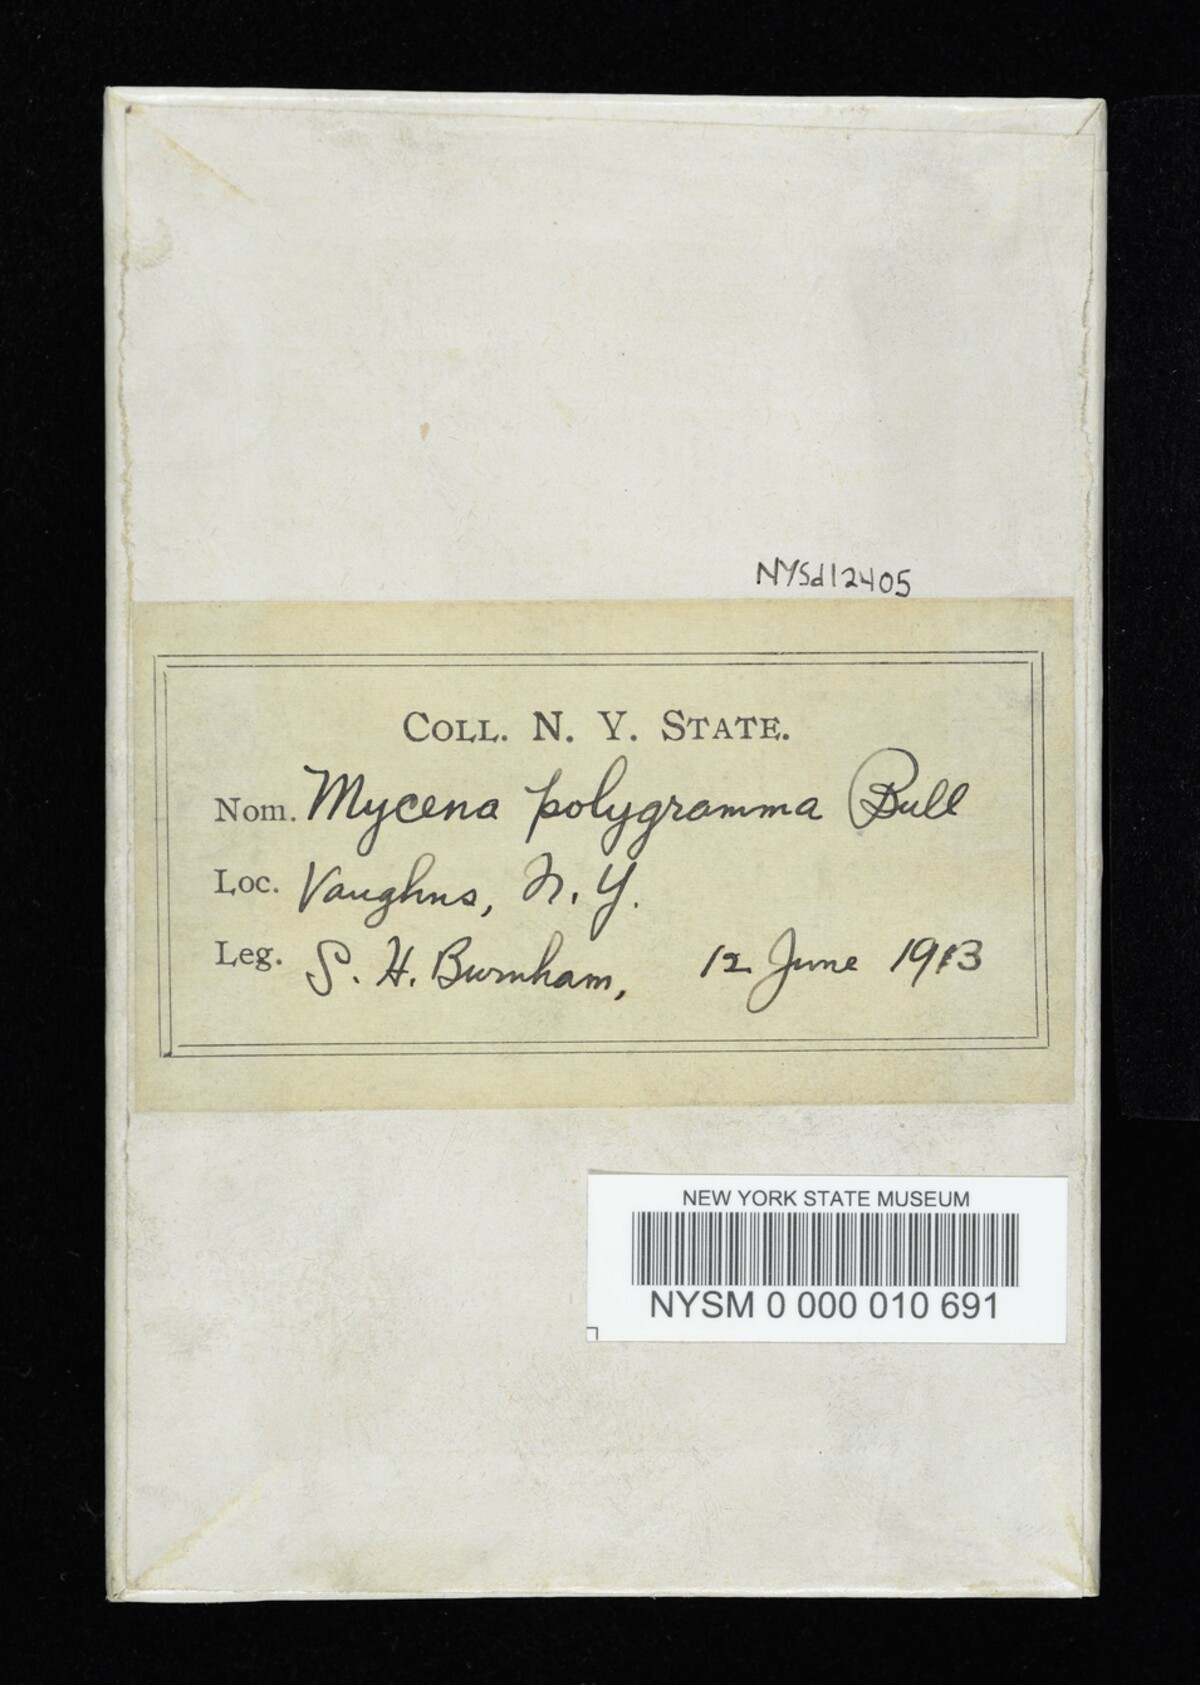 NYSd12405
COLL. N. Y. STATE.
Nom. Mycena polygramma Bull
Loc. Vaughns, N. Y.
Leg. S. H. Burnham, 12 June 1913
NEW YORK STATE MUSEUM
NYSM 0 000 010 691